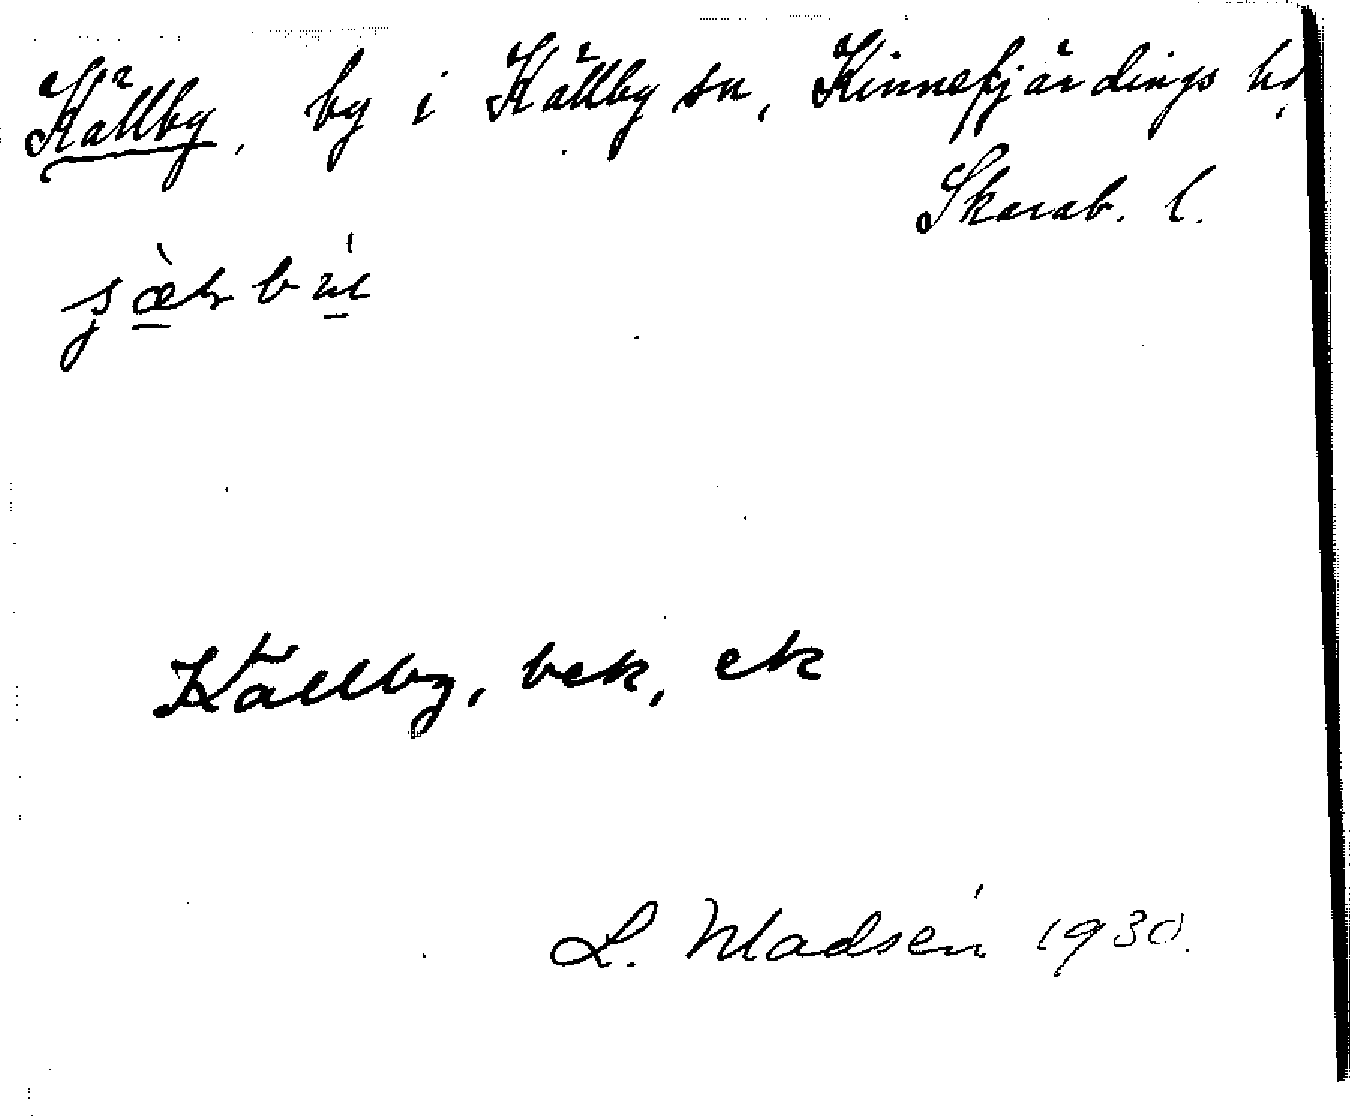 Källby, by i Källby sn, Kinnefjärdings hd
Skarab. l.
Källby, bek, ek
L. Madsén 1930.